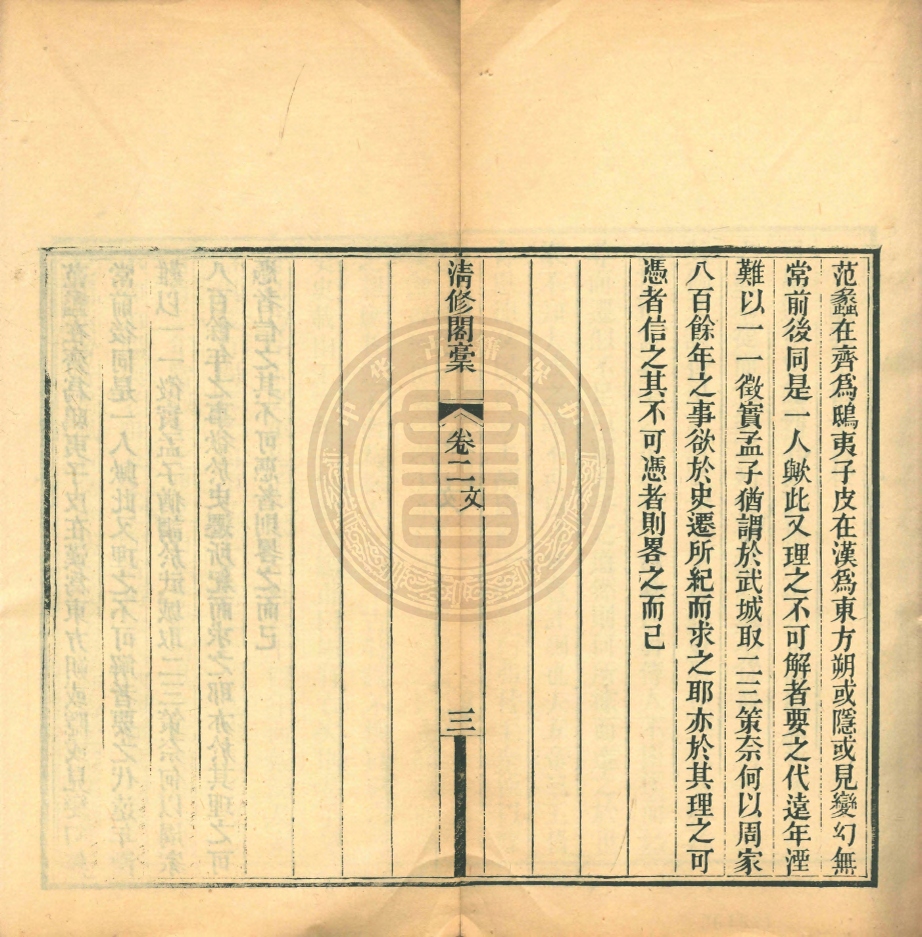 范蠡在齊爲鴟夷子皮在漢爲東方朔或隱或見變幻無
常前後同是一人歟此又理之不可解者要之代遠年湮
難以一一徵實孟子猶謂於武城取二三策奈何以周家
八百餘年之事欲於史遷所紀而求之耶亦於其理之可
憑者信之其不可憑者則畧之而已
清修閣稾
卷二 文
三